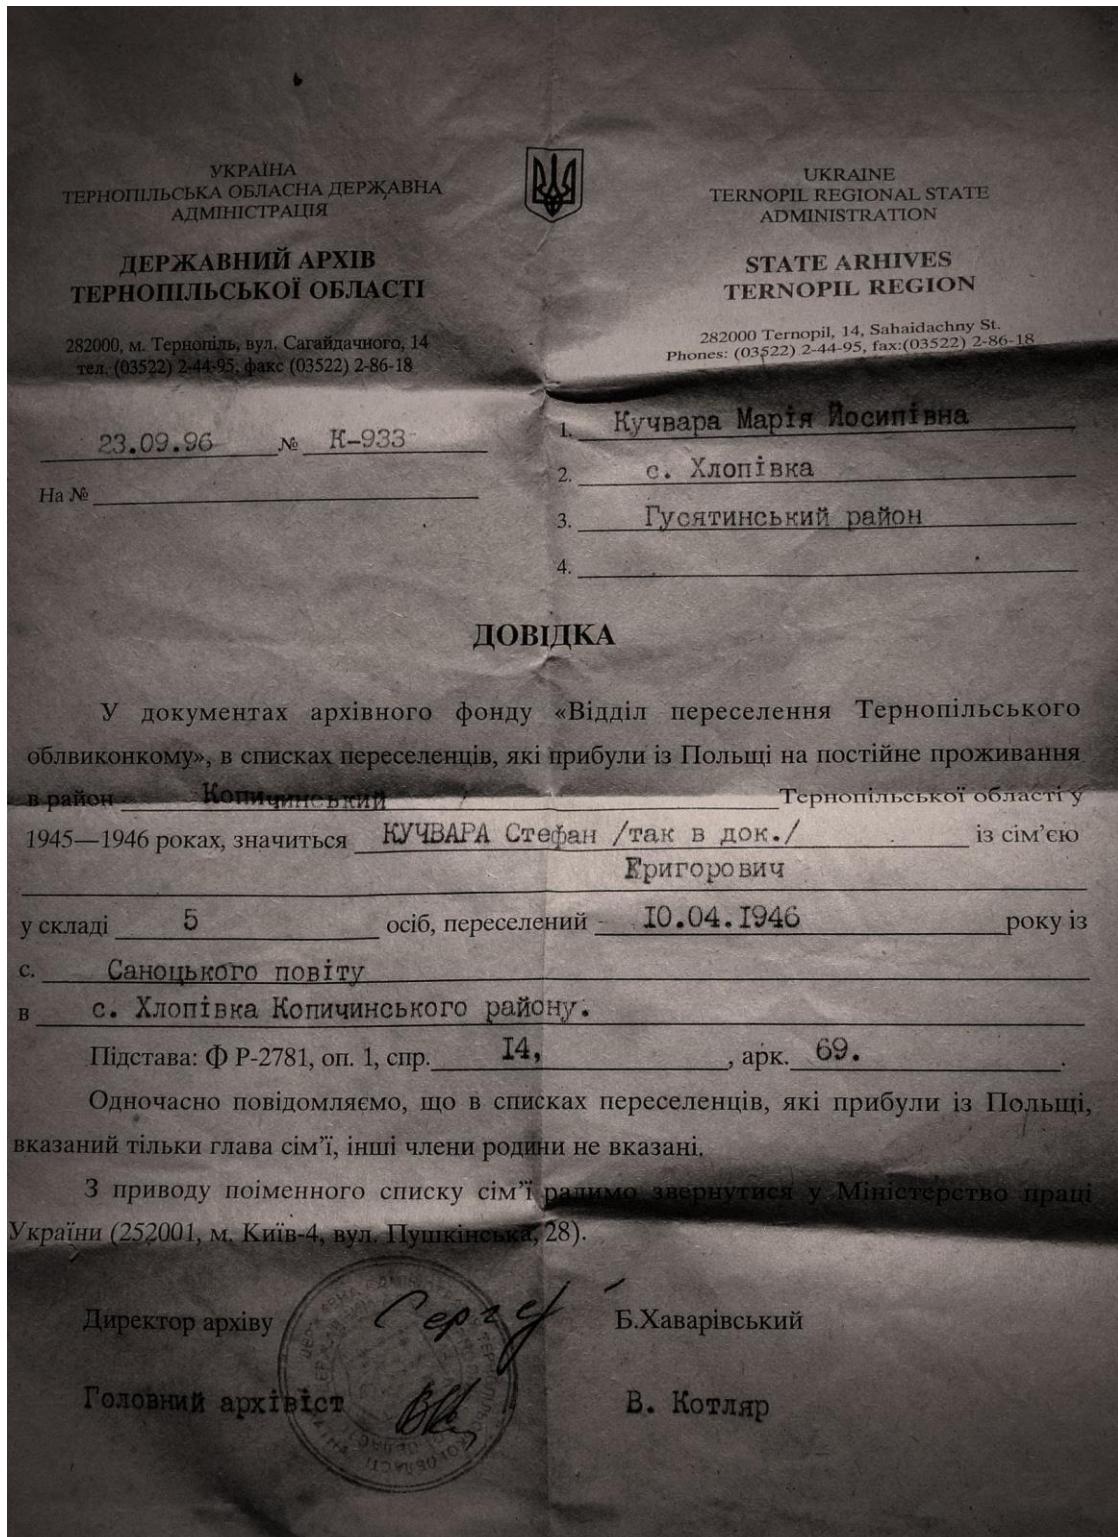 УКРАЇНА
ТЕРНОПІЛЬСЬКА ОБЛАСНА ДЕРЖАВНА
АДМІНІСТРАЦІЯ
ДЕРЖАВНИЙ АРХІВ
ТЕРНОПІЛЬСЬКОЇ ОБЛАСТІ
282000, м. Тернопіль, вул. Сагайдачного, 14
тел. (03522) 2-44-95, факс (03522) 2-86-18
UKRAINE
TERNOPIL REGIONAL STATE
ADMINISTRATION
STATE ARHIVES
TERNOPIL REGION
282000 Ternopil, 14, Sahaidachny St.
Phones: (03522) 2-44-95, fax:(03522) 2-86-18
23.09.96 № К-933
На №
1. Кучвара Марія Йосипівна
2. с. Хлопівка
3. Гусятинський район
4.
ДОВІДКА
У документах архівного фонду «Відділ переселення Тернопільського
облвиконкому», в списках переселенців, які прибули із Польщі на постійне проживання
в район Копичинський Тернопільської області у
1945—1946 роках, значиться КУЧВАРА Стефан /так в док./ із сім’єю
Григорович
у складі 5 осіб, переселений 10.04.1946 року із
с. Саноцького повіту
в с. Хлопівка Копичинського району.
Підстава: Ф Р-2781, оп. 1, спр. 14, , арк. 69. .
Одночасно повідомляємо, що в списках переселенців, які прибули із Польщі,
вказаний тільки глава сім’ї, інші члени родини не вказані.
З приводу поіменного списку сім’ї радимо звернутися у Міністерство праці
України (252001, м. Київ-4, вул. Пушкінська, 28).
Директор архіву Б.Хаварівський
Головний архівіст В. Котляр